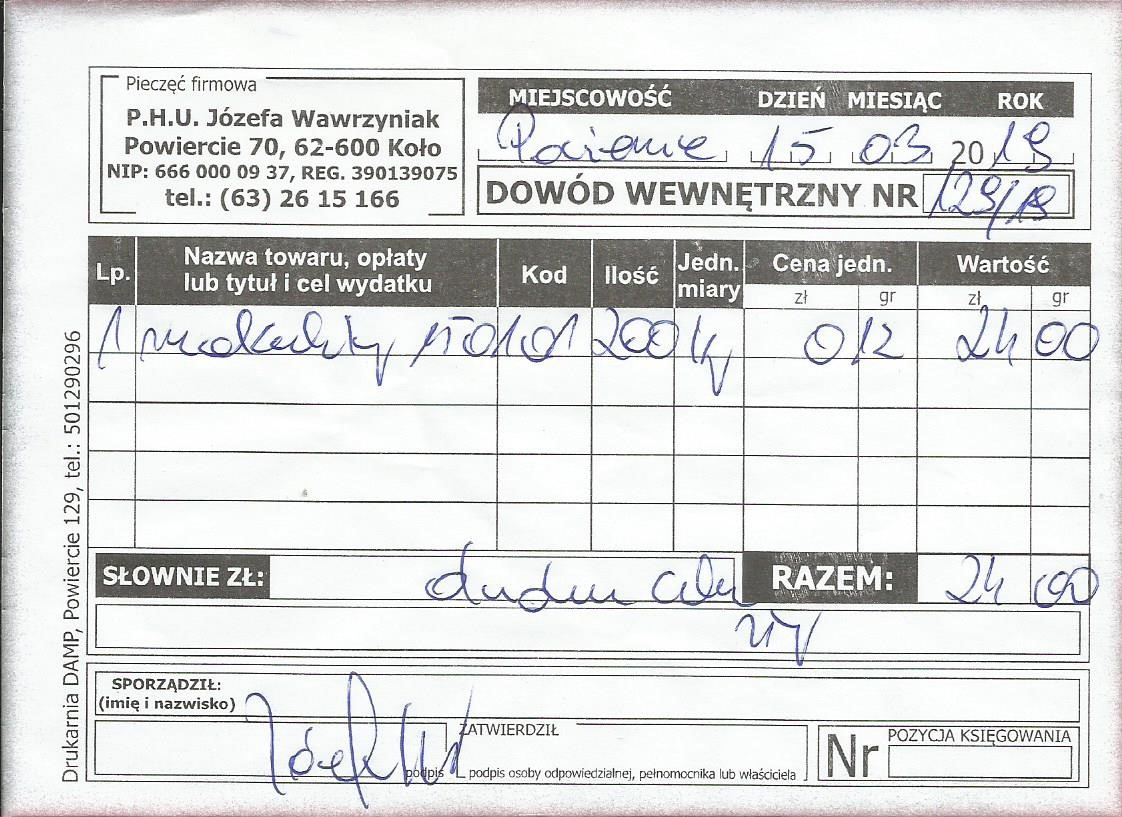 Pieczęć firmowa
P.H.U. Józefa Wawrzyniak
Powiercie 70, 62-600 Koło
NIP: 666 000 09 37, REG. 390139075
tel.: (63) 26 15 166
MIEJSCOWOŚĆ DZIEŃ MIESIĄC ROK
15 03 2019
DOWÓD WEWNĘTRZNY NR 129/19
Lp. Nazwa towaru, opłaty lub tytuł i cel wydatku Kod Ilość Jedn. miary Cena jedn. Wartość
zł gr zł gr
1 makulatury 150101 200 kg 0 12 24 00
SŁOWNIE ZŁ: RAZEM: 24 00
SPORZĄDZIŁ:
(imię i nazwisko)
podpis
ZATWIERDZIŁ
podpis osoby odpowiedzialnej, pełnomocnika lub właściciela
Nr POZYCJA KSIĘGOWANIA
Drukarnia DAMP, Powiercie 129, tel.: 501290296